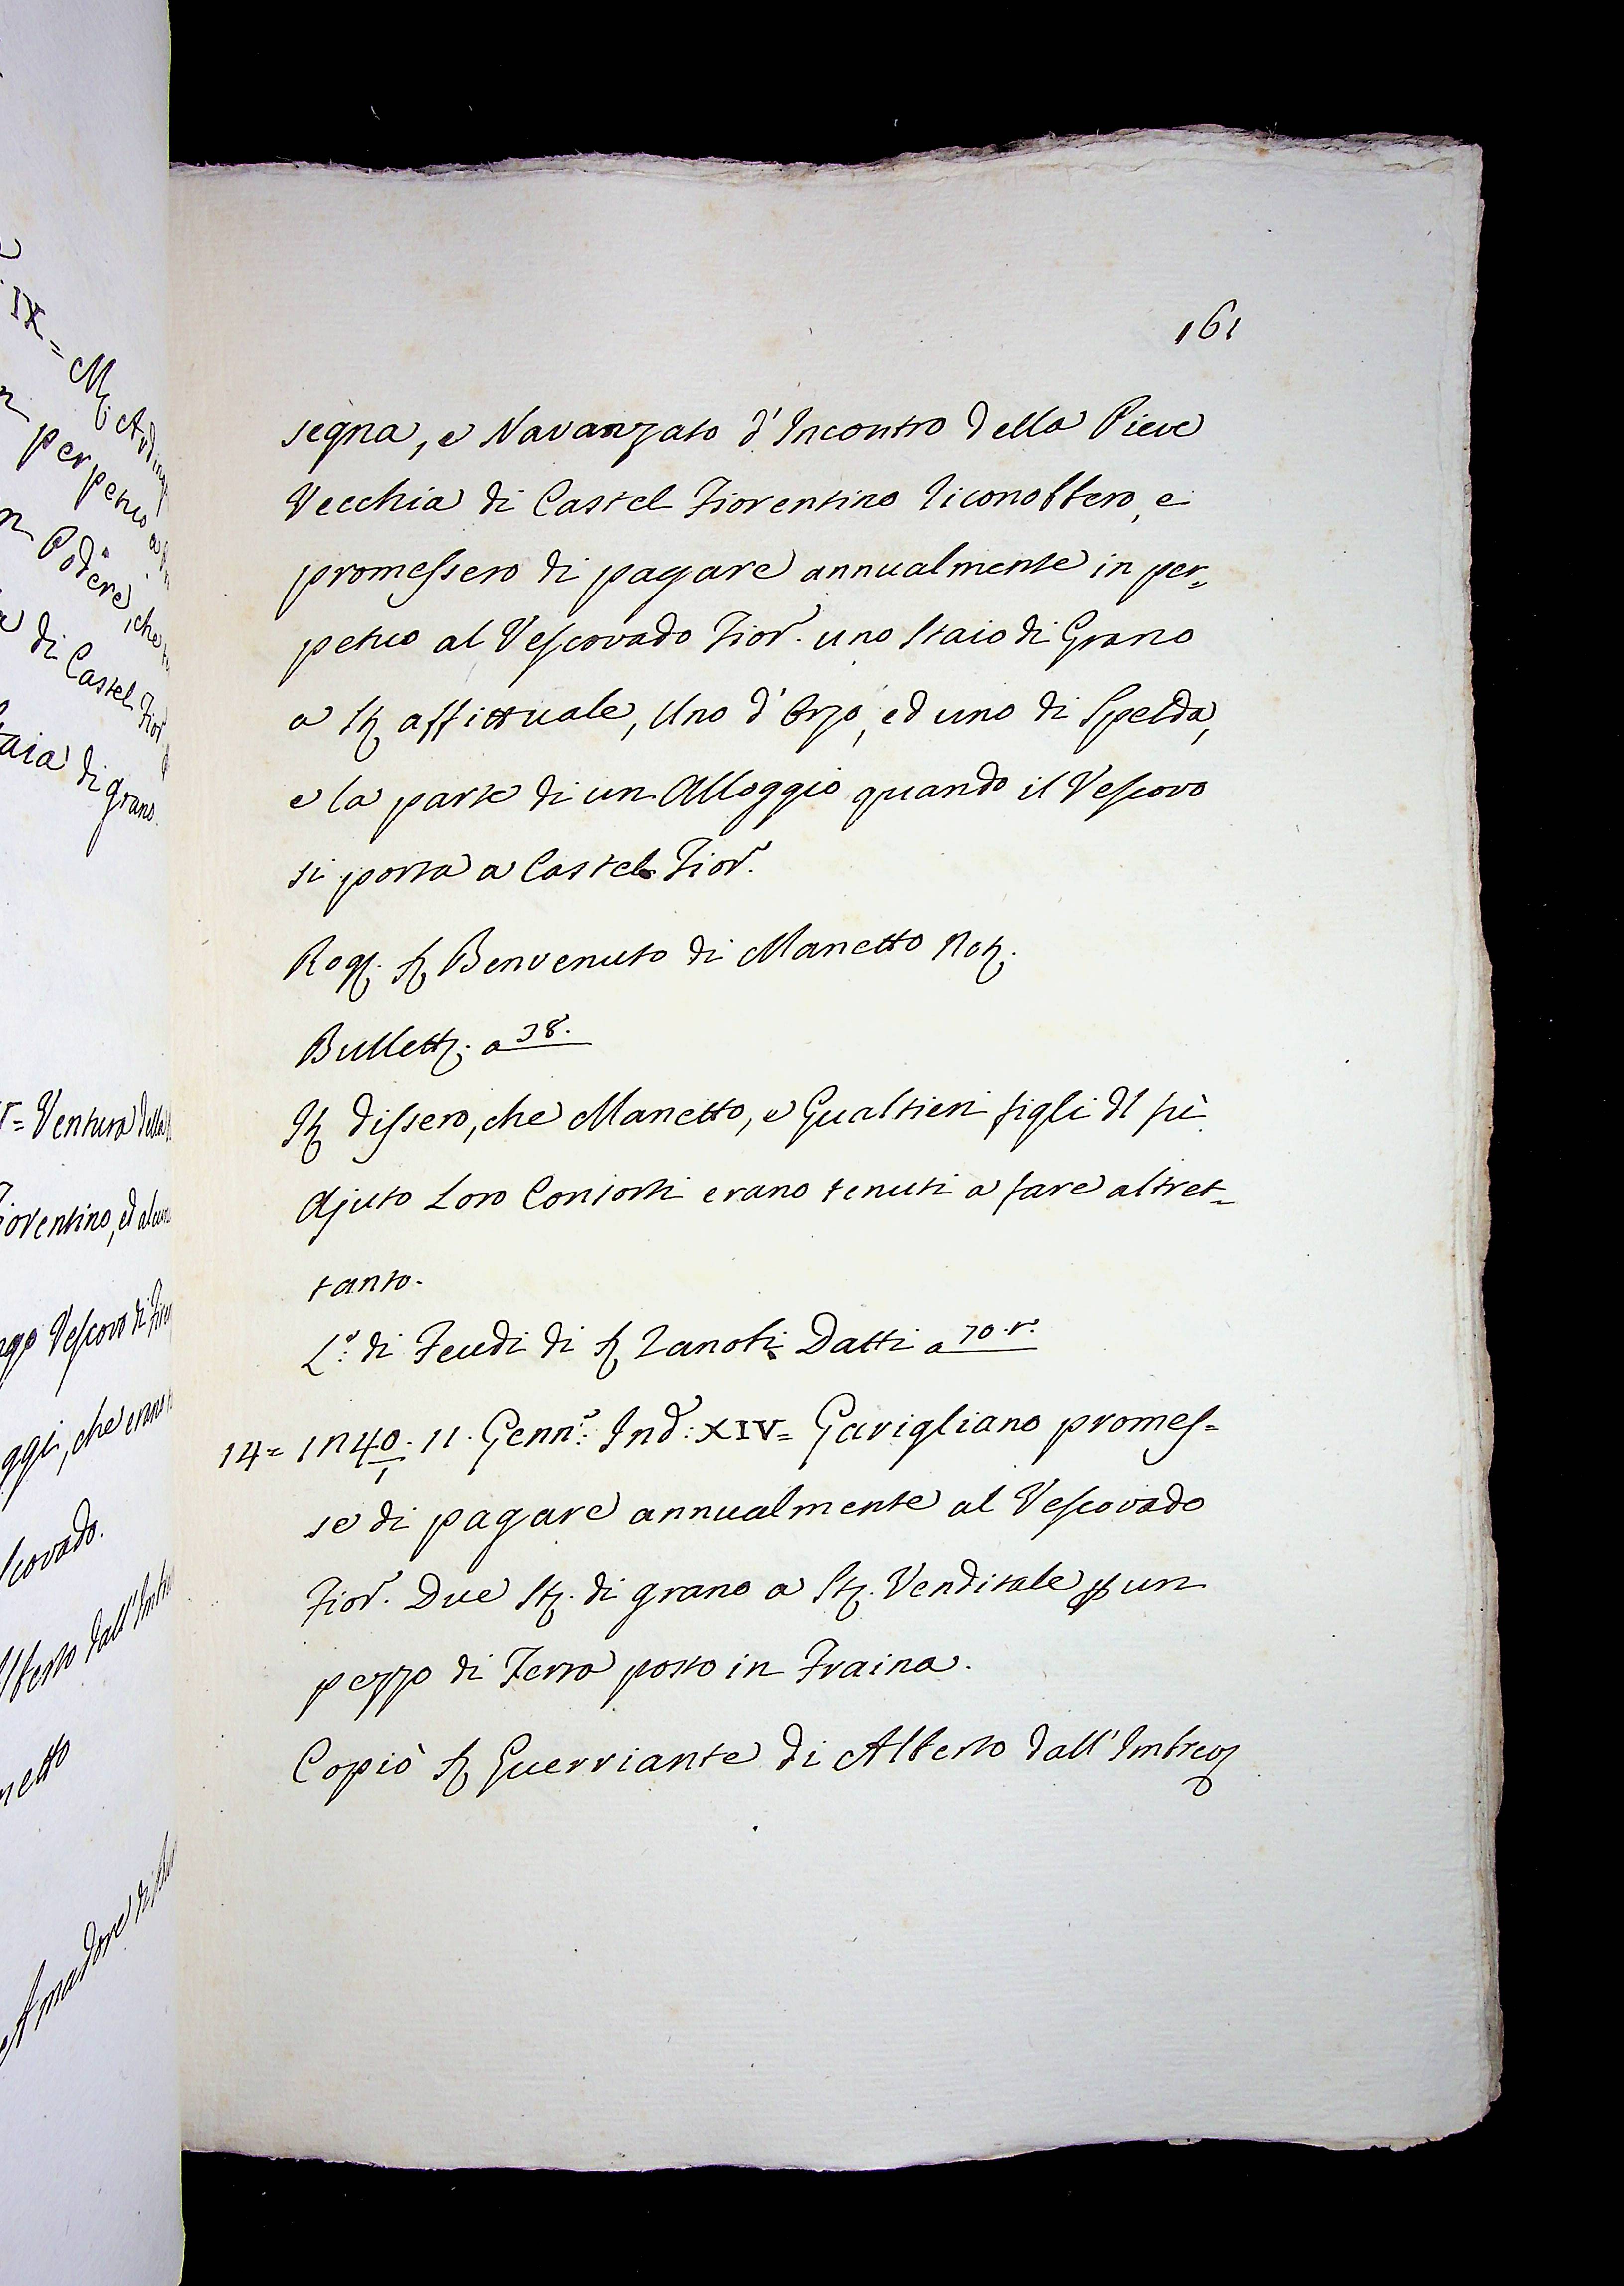 161
segna, e Navanzato d'Incontro della Pieve
Vecchia di Castel Fiorentino riconobbero, e
promessero di pagare annualmente in per=
petuo al Vescovado Fior. uno Staio di Grano
a St. affittuale, Uno d'Orzo, ed uno di Spelda,
e la parte di un Alloggio quando il Vescovo
si porta a Castel Fior.
Rog. S. Benvenuto di Manetto Not.
Bullett. a 38.
It dissero, che Manetto, e Gualtieri figli dl fù
Ajuto Loro Consorti erano tenuti a fare altret=
tanto.
L.º di Feudi di S. Zanobi Datti a 70. r.
14= 1240. 11. Genn.º Ind: XIV= Gavigliano promes=
se di pagare annualmente al Vescovado
Fior. Due St. di grano a St. Venditale p un
pezzo di Terra posto in Fraina.
Copiò S. Guerriante di Alberto dall'Imbreo
IX = M. Arding
perpetuo a
n Podere, che
di Castel Fior
aia di grano.
= Ventura della
iorentino, ed alcun
ago Vescovo di Fior
ggi, che erano
scovado.
lberto dall'Imbre
netto
Amadore di